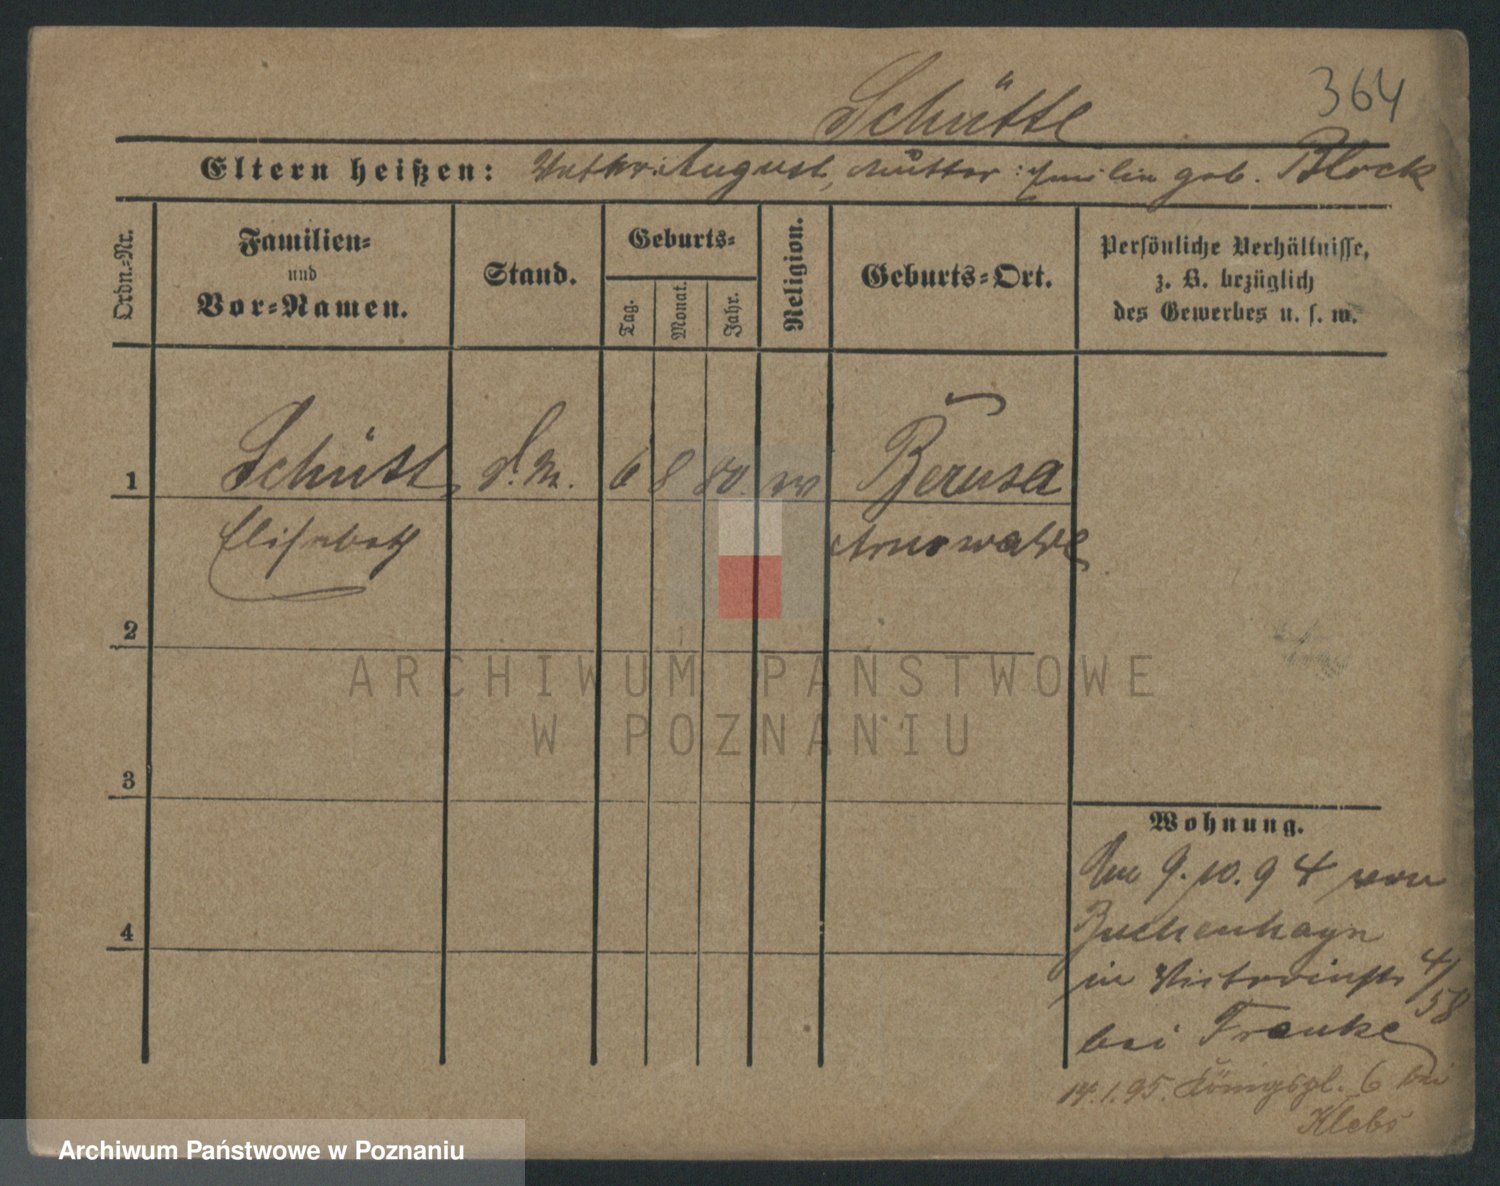 364
Schütte
Eltern heißen: Vater: August, Mutter: Emilie geb. Block
Ordn.-Nr.
Familien-
und
Vor-Namen.
Stand.
Geburts-
Tag.
Monat.
Jahr.
Religion.
Geburts-Ort.
Persönliche Verhältnisse,
z. B. bezüglich
des Gewerbes u. s. w.
1 Schütt, d. M. 6 8 80.
Elisabeth Arnswalde
2
3
4
Wohnung.
Am 9.10.94 von
Buchenhagen
in Victoriastr 4/58
bei Franke
14.1.95. Königspl. 6 bei
Klebs
ARCHIWUM PAŃSTWOWE
W POZNANIU
Archiwum Państwowe w Poznaniu